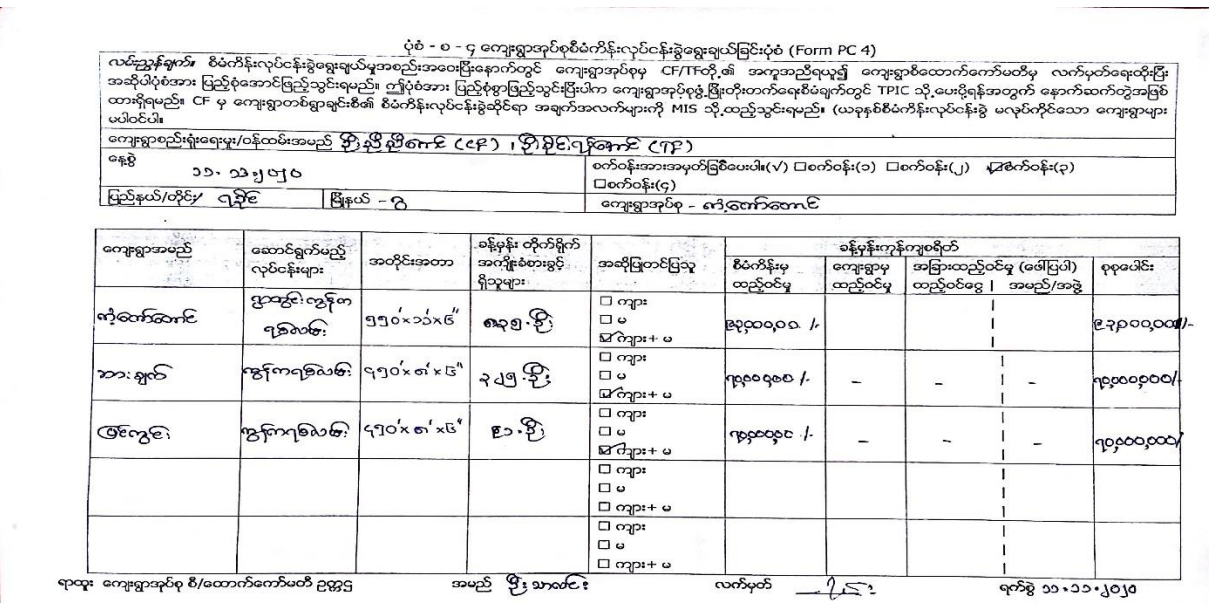 ပုံစံ - စ - ၄ ကျေးရွာအုပ်စုစီမံကိန်းလုပ်ငန်းခွဲရွေးချယ်ခြင်းပုံစံ (Form PC 4)
လမ်းညွှန်ချက်။ စီမံကိန်းလုပ်ငန်းခွဲရွေးချယ်မှုအစည်းအဝေးပြီးနောက်တွင် ကျေးရွာအုပ်စုမှ CF/TFတို့၏ အကူအညီရယူ၍ ကျေးရွာစီထောက်ကော်မတီမှ လက်မှတ်ရေးထိုးပြီး
အဆိုပါပုံစံအား ပြည့်စုံအောင်ဖြည့်သွင်းရမည်။ ဤပုံစံအား ပြည့်စုံစွာဖြည့်သွင်းပြီးပါက ကျေးရွာအုပ်စုဖွံ့ဖြိုးတိုးတက်ရေးစီမံချက်တွင် TPIC သို့ပေးပို့ရန်အတွက် နောက်ဆက်တွဲအဖြစ်
ထားရှိရမည်။ CF မှ ကျေးရွာတစ်ရွာချင်းစီ၏ စီမံကိန်းလုပ်ငန်းခွဲဆိုင်ရာ အချက်အလက်များကို MIS သို့ထည့်သွင်းရမည်။ (ယခုနှစ်စီမံကိန်းလုပ်ငန်းခွဲ မလုပ်ကိုင်သော ကျေးရွာများ
မပါဝင်ပါ။
ကျေးရွာစည်းရုံးရေးမှူး/ဝန်ထမ်းအမည် ဦးညီညီအောင် (CF) ၊ ဦးခိုင်ရန်အောင် (TF)
နေ့စွဲ ၁၁. ၁၁.၂၀၂၀ စက်ဝန်းအားအမှတ်ခြစ်ပေးပါ။(√) □စက်ဝန်း(၁) □စက်ဝန်း(၂) ☑စက်ဝန်း(၃)
□စက်ဝန်း(၄)
ပြည်နယ်/တိုင်း/ ရခိုင် မြို့နယ် - ဂွ ကျေးရွာအုပ်စု - ကံ့ကော်တောင်
ကျေးရွာအမည် ဆောင်ရွက်မည့် လုပ်ငန်းများ အတိုင်းအတာ ခန့်မှန်း တိုက်ရိုက် အကျိုးခံစားခွင့် ရှိသူများ အဆိုပြုတင်ပြသူ ခန့်မှန်းကုန်ကျစရိတ်
စီမံကိန်းမှ ထည့်ဝင်မှု ကျေးရွာမှ ထည့်ဝင်မှု အခြားထည့်ဝင်မှု (ဖော်ပြပါ) ထည့်ဝင်ငွေ | အမည်/အဖွဲ့ စုစုပေါင်း
ကံ့ကော်တောင် ရွာတွင်းကွန်က ရစ်လမ်း ၅၅၀'×၁၁'×၆" ၈၃၅.ဦး □ ကျား
□ မ
☑ ကျား+ မ
သားချက် ကွန်ကရစ်လမ်း ၄၅၀'×၈'×၆" ၃၂၅.ဦး □ ကျား
□ မ
☑ ကျား+ မ ၇၀,၀၀၀၀၀ /- - - - ၇၀,၀၀၀,၀၀၀/-
ကွန်ကရစ်လမ်း ၄၅၀'×၈'×၆" ၉၁.ဦး □ ကျား
□ မ
☑ ကျား+ မ - - - ၇၀,၀၀၀,၀၀၀/
□ ကျား
□ မ
□ ကျား+ မ
□ ကျား
□ မ
□ ကျား+ မ
ရာထူး ကျေးရွာအုပ်စု စီ/ထောက်ကော်မတီ ဥက္ကဌ အမည် ဦး လက်မှတ် ရက်စွဲ ၁၁.၁၁.၂၀၂၀